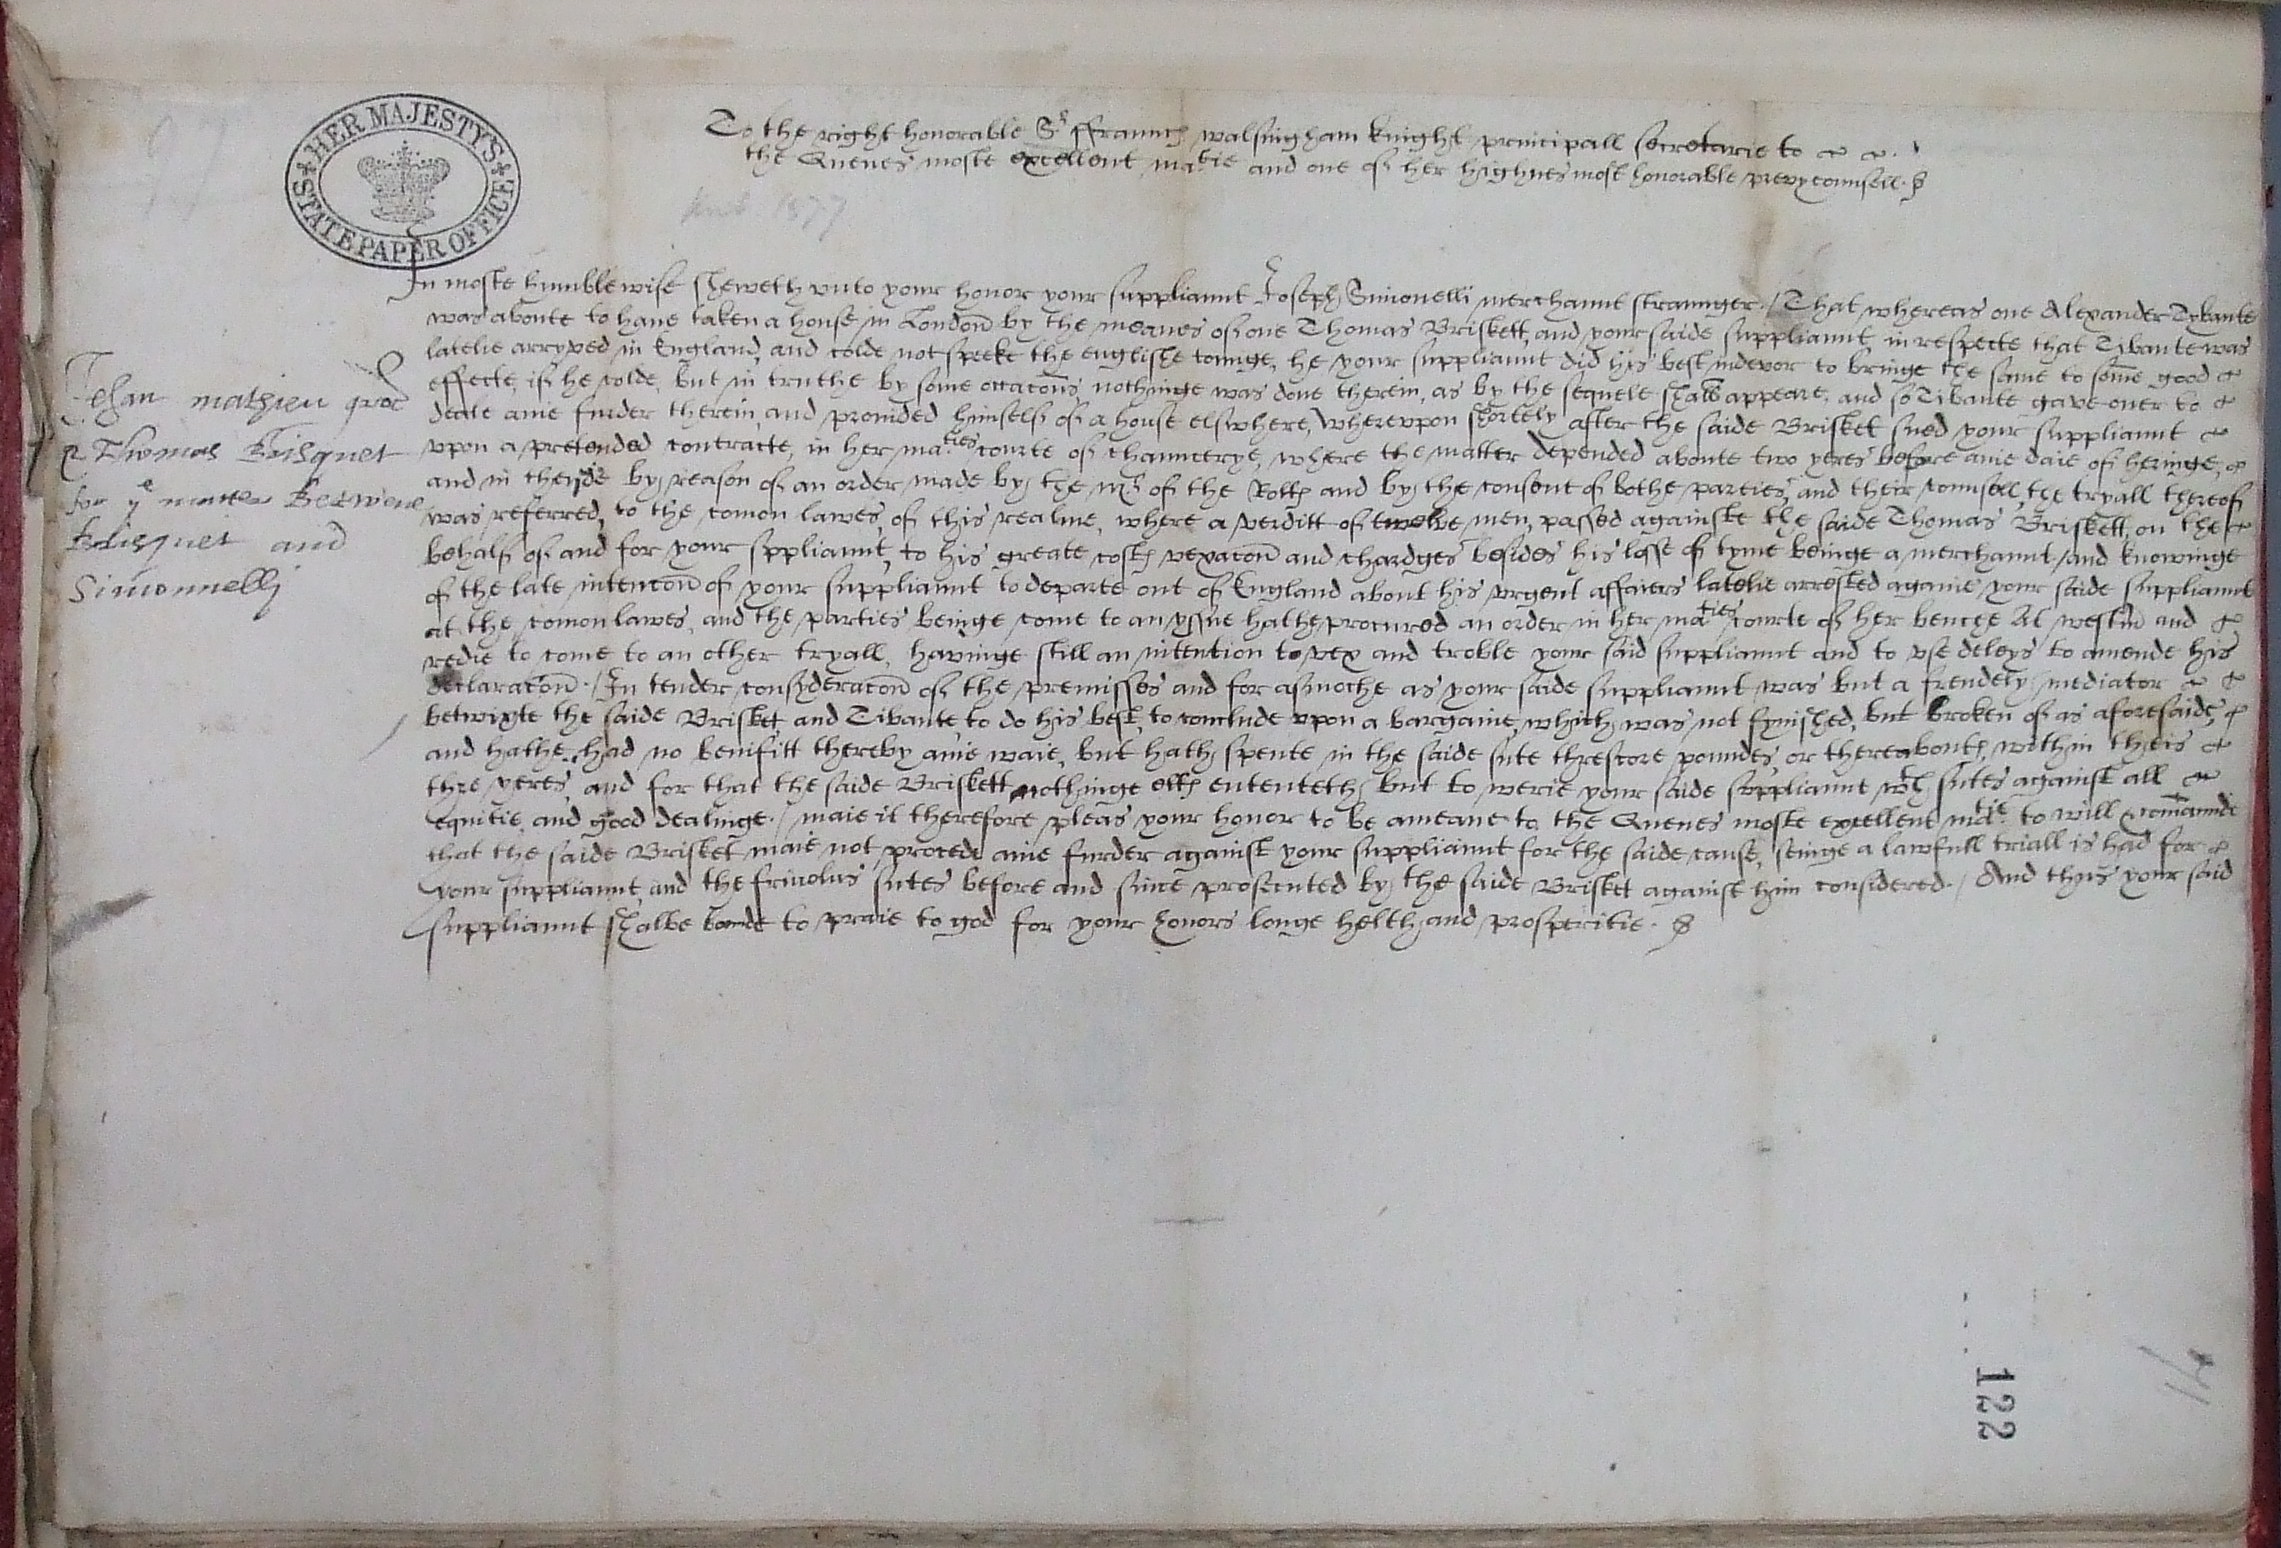 HER MAJESTY'S
STATE PAPER OFFICE
To the right honorable Sr ffraunc walsingham knight principall secretarie to
the Quenes moste excellent matie and one of her highnes most honorable prevy counsell.
1577
In moste humble wise sheweth unto your honor your suppliaunt Joseph Simonelli merchaunt straunger./ That whereas one Alexander Tybante
was aboute to have taken a house in London by the meanes of one Thomas Briskett, and your saide suppliaunt in respecte that Tibante was
latelie arryved in England, and colde not speeke the englishe tounge, he your suppliaunt did his best indevor to bringe the same to some good
effecte, if he colde, but in truthe by some occacons nothinge was done therein, as by the sequele shall appeare, and so Tibante gave over to
deale anie furder therein, and provided himself of a house elswhere, Whereupon shortely after the saide Brisket sued your suppliaunt
upon a pretended contracte, in her maties courte of chauncerye, where the matter depended aboute two yeres before anie daie of heringe,
and in thende by reason of an order made by the Mr of the Rolls and by the consent of bothe parties, and their counsell, the tryall thereof
was referred, to the comon lawes of this realme, where a verditt of twelve men, passed againste the saide Thomas Briskett, on the
behalf of and for your sppliaunt, to his greate costs vexacon and chardges besides his losse of tyme beinge a merchaunt / and knowinge
of the late intencon of your suppliaunt to departe out of England about his urgent affaiers latelie arrested againe your saide suppliaunt
at the comon lawes, and the parties beinge come to an yssue hathe procured an order in her maties courte of her benche At westm and
redie to come to an other tryall, havinge still an intention to vex and troble your said suppliaunt and to use deleys to amende his
declaracon./ In tender consyderacon of the premisses and for asmoche as your saide suppliaunt was but a frendely mediator
betwixte the saide Brisket and Tibante to do his best, to conclude upon a bargaine, which was not fynished, but broken of as aforesaide,
and hathe had no benifitt thereby anie waie, but hath spente in the saide sute threscore poundes, or thereabouts, within theis
thre yeres, and for that the saide Briskett nothinge ells ententeth but to werie your saide suppliaunt wth sutes against all
equitie and good dealinge./ maie it therefore pleas your honor to be a meane to the Quenes moste excellent matie to will & comaunde
that the saide Brisket maie not procede anie furder against your suppliaunt for the saide cause, seinge a lawfull triall is had for
your suppliaunt, and the frivolus sutes before and since prosecuted by the saide Brisket against him considered./ And thus your said
suppliaunt shalbe bonde to praie to god for your honors longe helth and prosperitie.
Jehan mathieu
Thomas Brisquet
for ye matter Betwene
Brisquet and
Simonnelli
122